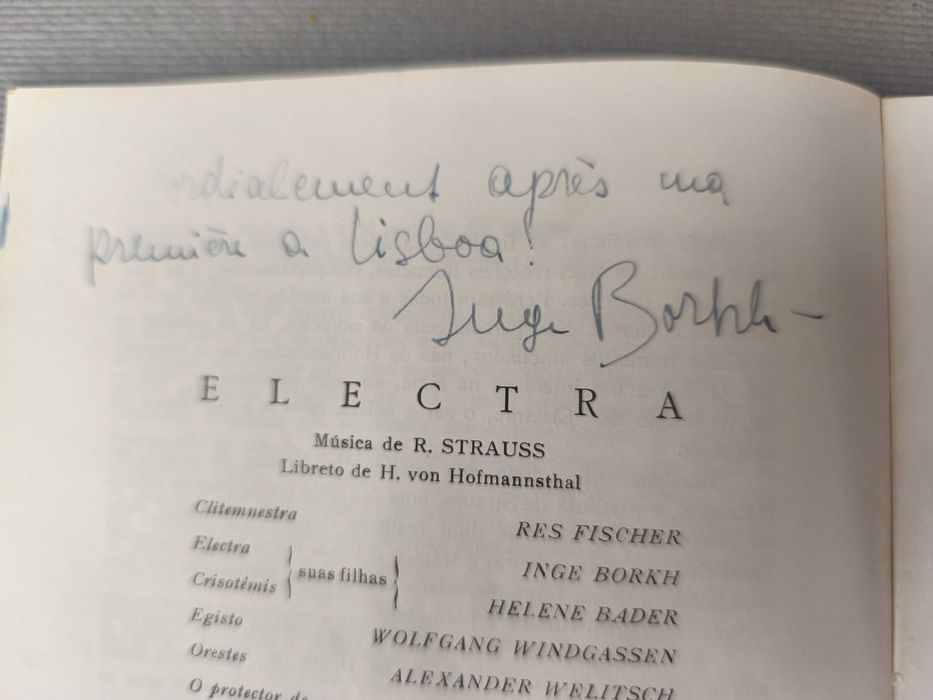 rdialement après ma
première a lisboa!
Inge Borkh
ELECTRA
Música de R. STRAUSS
Libreto de H. von Hofmannsthal
Clitemnestra RES FISCHER
Electra INGE BORKH
suas filhas
Crisotémis HELENE BADER
Egisto WOLFGANG WINDGASSEN
Orestes ALEXANDER WELITSCH
O protector de